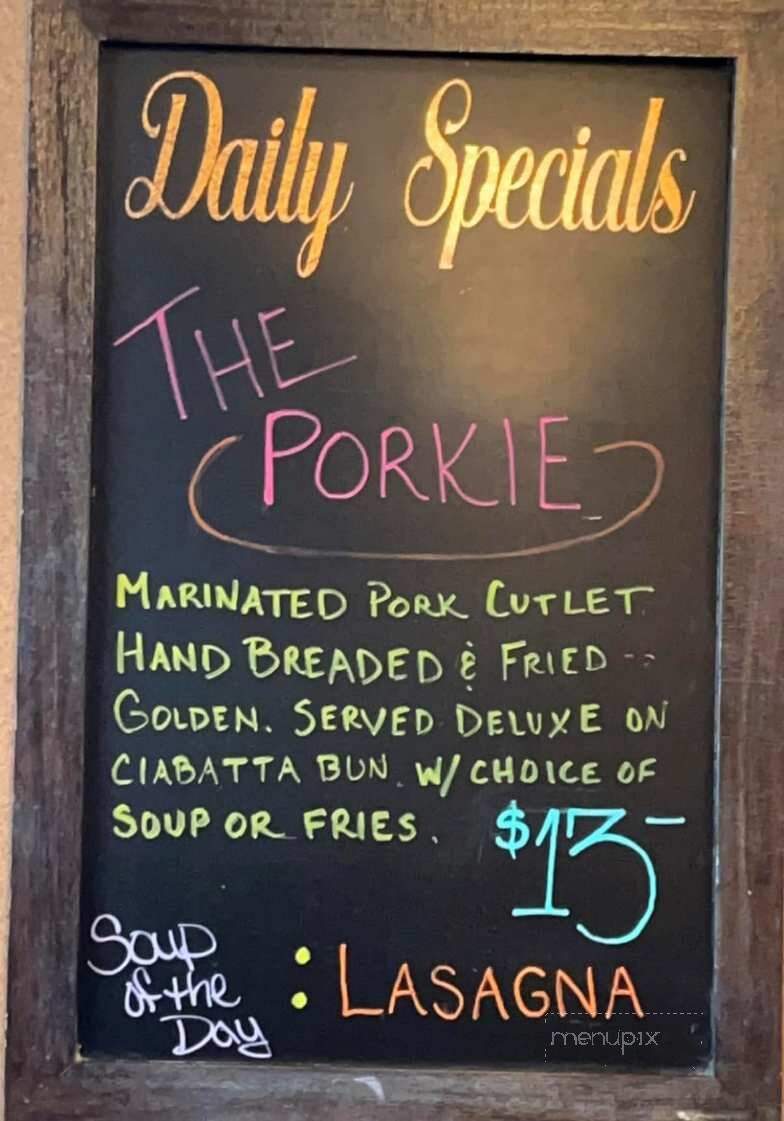 Daily Specials
THE
PORKIE
MARINATED PORK CUTLET
HAND BREADED & FRIED --
GOLDEN. SERVED DELUXE ON
CIABATTA BUN. W/ CHOICE OF
SOUP OR FRIES.
$13-
Soup
of the
Day
: LASAGNA
menupix